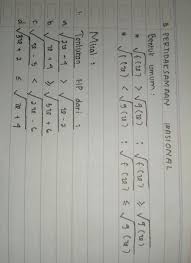 B. PERTIDAKSAMAAN IRASIONAL
Bentuk umum :
* √f(x) > √g(x) ; √f(x) ≥ √g(x)
* √f(x) < √g(x) ; √f(x) ≤ √g(x)
Misal :
1. Tentukan HP dari :
a. √2x - 4 > √x - 2
b. √x + 4 ≥ √5x + 6
c. √x - 5 < √2x - 6
d. √3x + 2 ≤ √x + 4